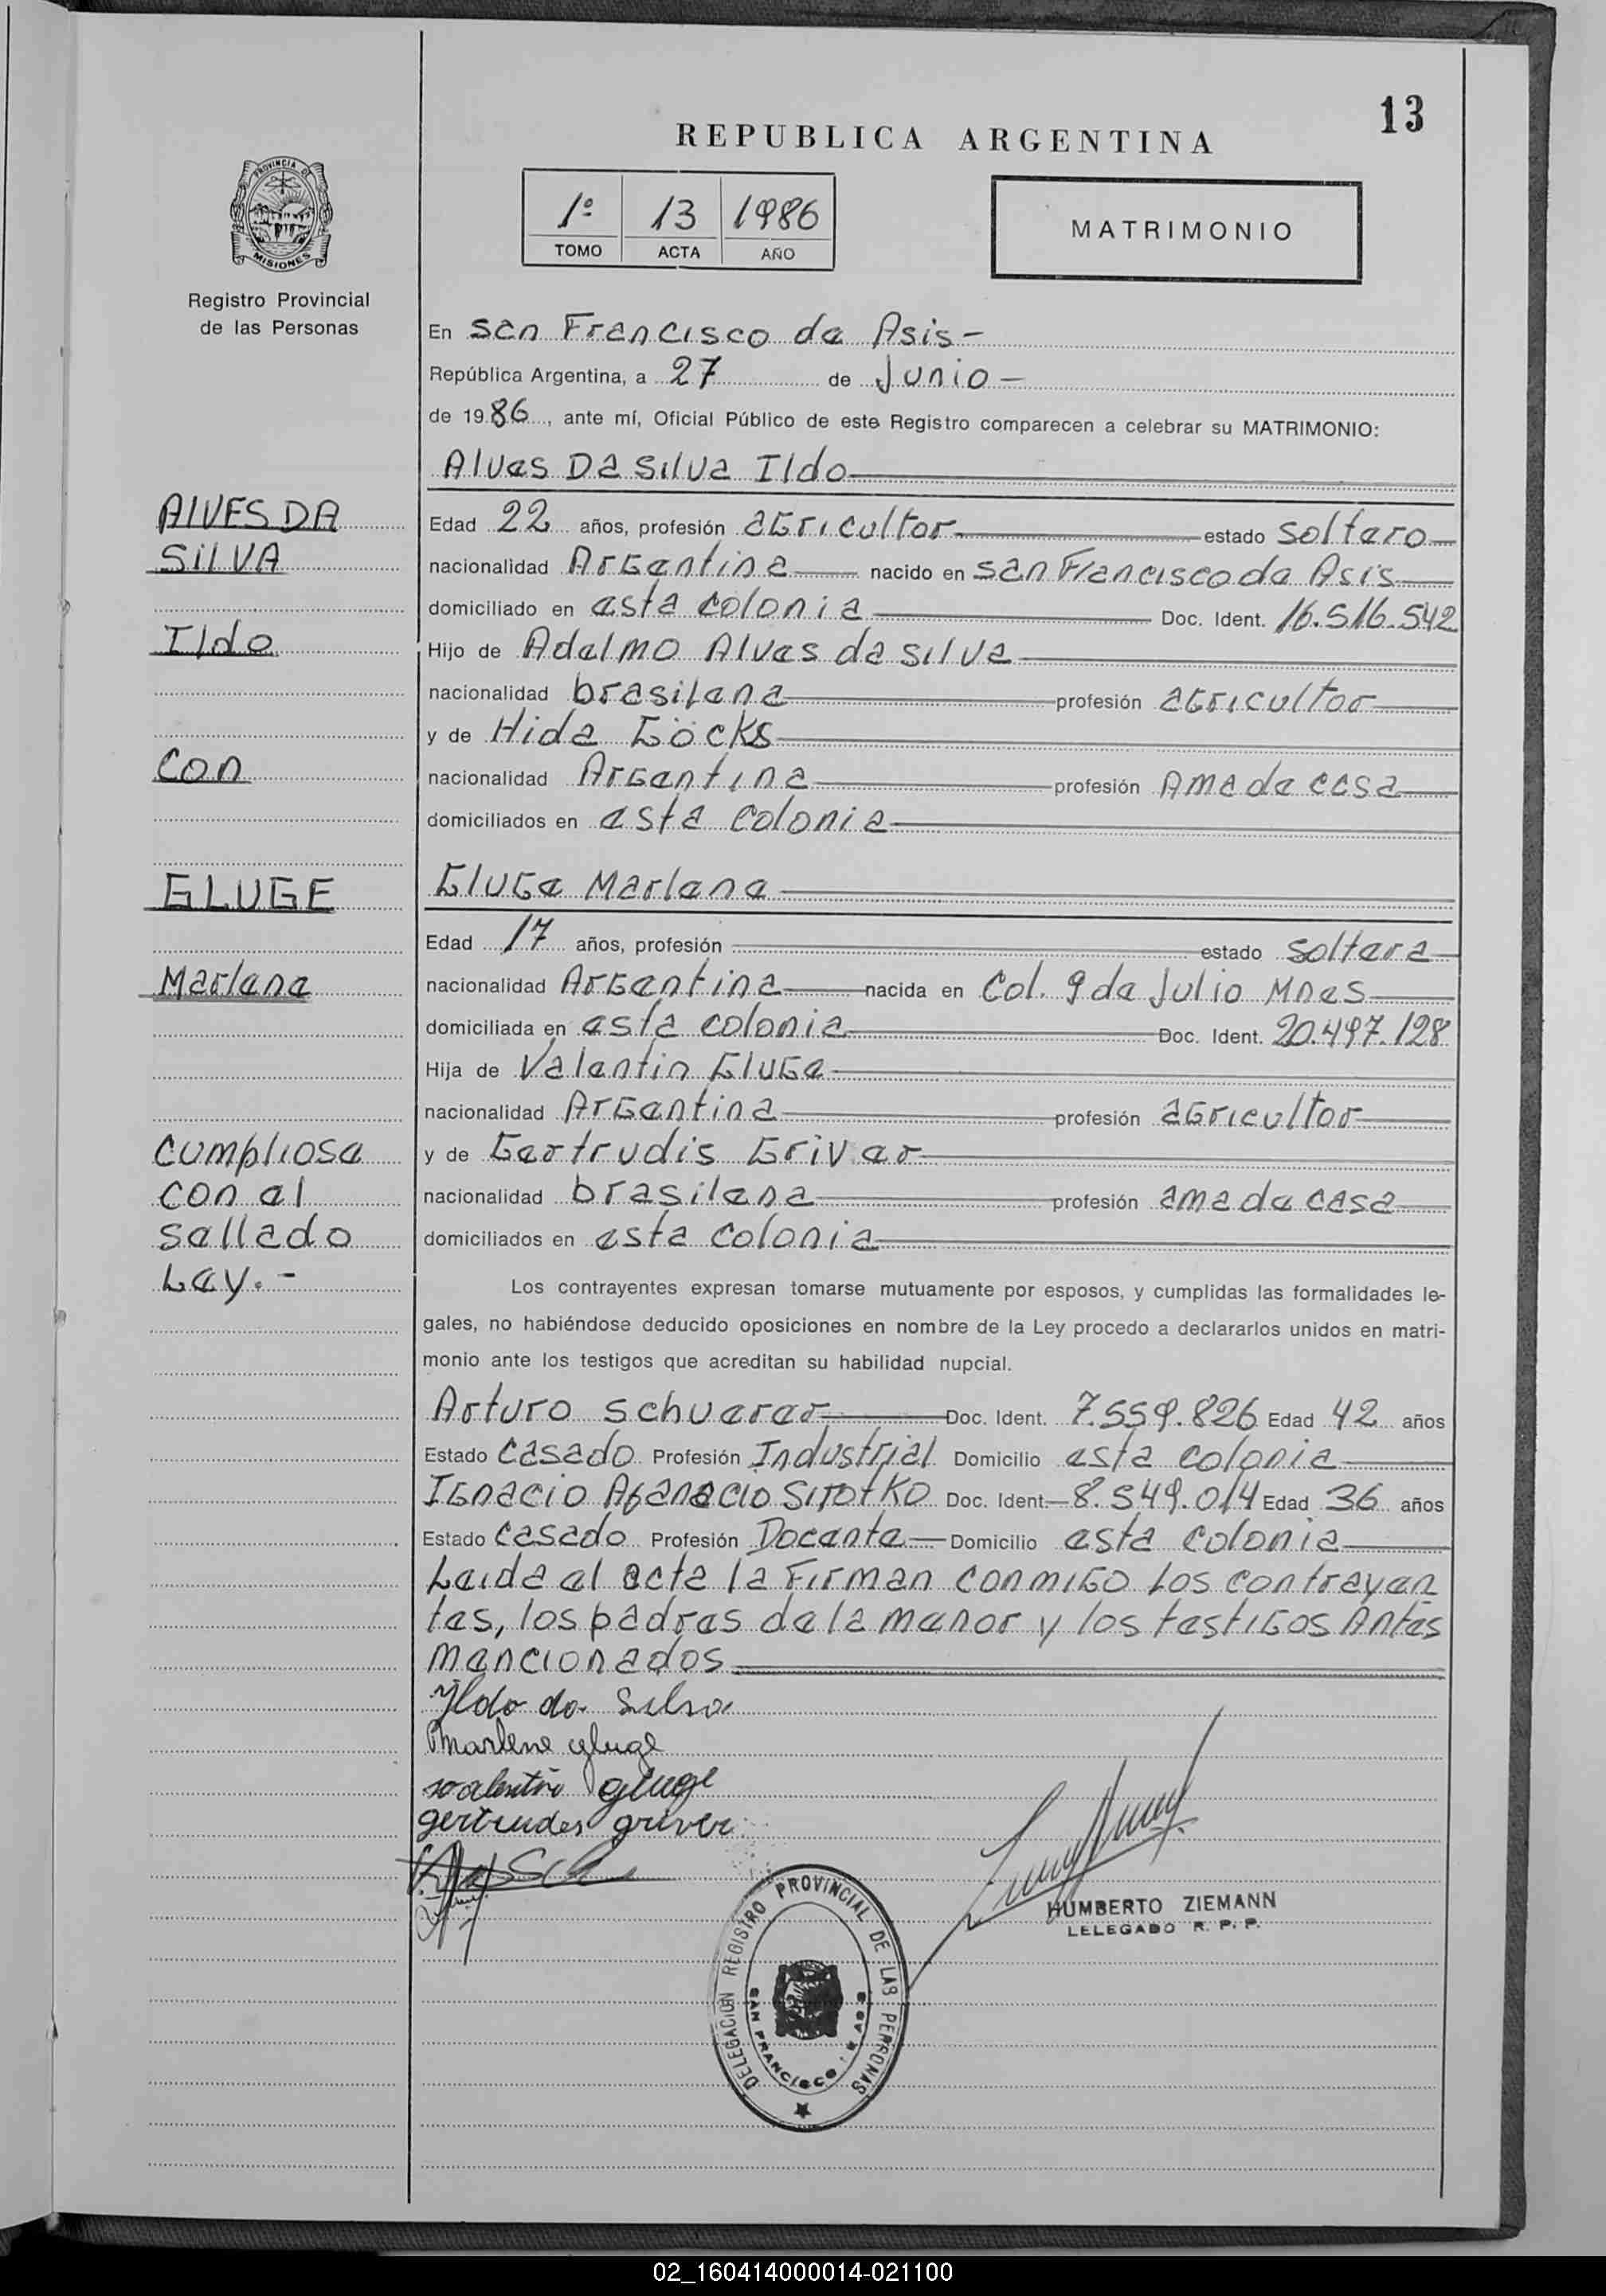 13
REPUBLICA ARGENTINA
PROVINCIA DE MISIONES
Registro Provincial
de las Personas
1º 13 1986
TOMO ACTA AÑO
MATRIMONIO
En San Francisco de Asis-
República Argentina, a 27 de Junio-
de 1986, ante mí, Oficial Público de este Registro comparecen a celebrar su MATRIMONIO:
Alves Da Silva Ildo
ALVES DA
SILVA
Ildo
con
GLUGE
Marlene
Cumpliose
con el
sellado
Ley.-
Edad 22 años, profesión agricultor estado soltero
nacionalidad Argentina nacido en San Francisco de Asis
domiciliado en esta colonia Doc. Ident. 16.516.542
Hijo de Adelmo Alves da silva
nacionalidad brasilena profesión agricultor
y de Hida Göcks
nacionalidad Argentina profesión Ama de casa
domiciliados en esta colonia
Gluge Marlene
Edad 17 años, profesión estado soltera
nacionalidad Argentina nacida en Col. 9 de Julio Mnes
domiciliada en esta colonia Doc. Ident. 20.497.128
Hija de Valentin Gluge
nacionalidad Argentina profesión agricultor
y de Gertrudis Griver
nacionalidad brasilena profesión ama de casa
domiciliados en esta colonia
Los contrayentes expresan tomarse mutuamente por esposos, y cumplidas las formalidades le-
gales, no habiéndose deducido oposiciones en nombre de la Ley procedo a declararlos unidos en matri-
monio ante los testigos que acreditan su habilidad nupcial.
Arturo Schuerer Doc. Ident. 7.559.826 Edad 42 años
Estado Casado Profesión Industrial Domicilio esta colonia
Ignacio Afanacio Sitotko Doc. Ident. 8.549.014 Edad 36 años
Estado Casado Profesión Docente Domicilio esta colonia
Leida el acta la Firman conmigo los contrayen
tes, los padres de la menor y los testigos Antes
mencionados
Yldo da Silva
Marlene gluge
valentin gluge
gertrudes griver
HUMBERTO ZIEMANN
LELEGADO R. P. P.
DELEGACION REGISTRO PROVINCIAL DE LAS PERSONAS
SAN FRANCISCO ASIS
02_160414000014-021100